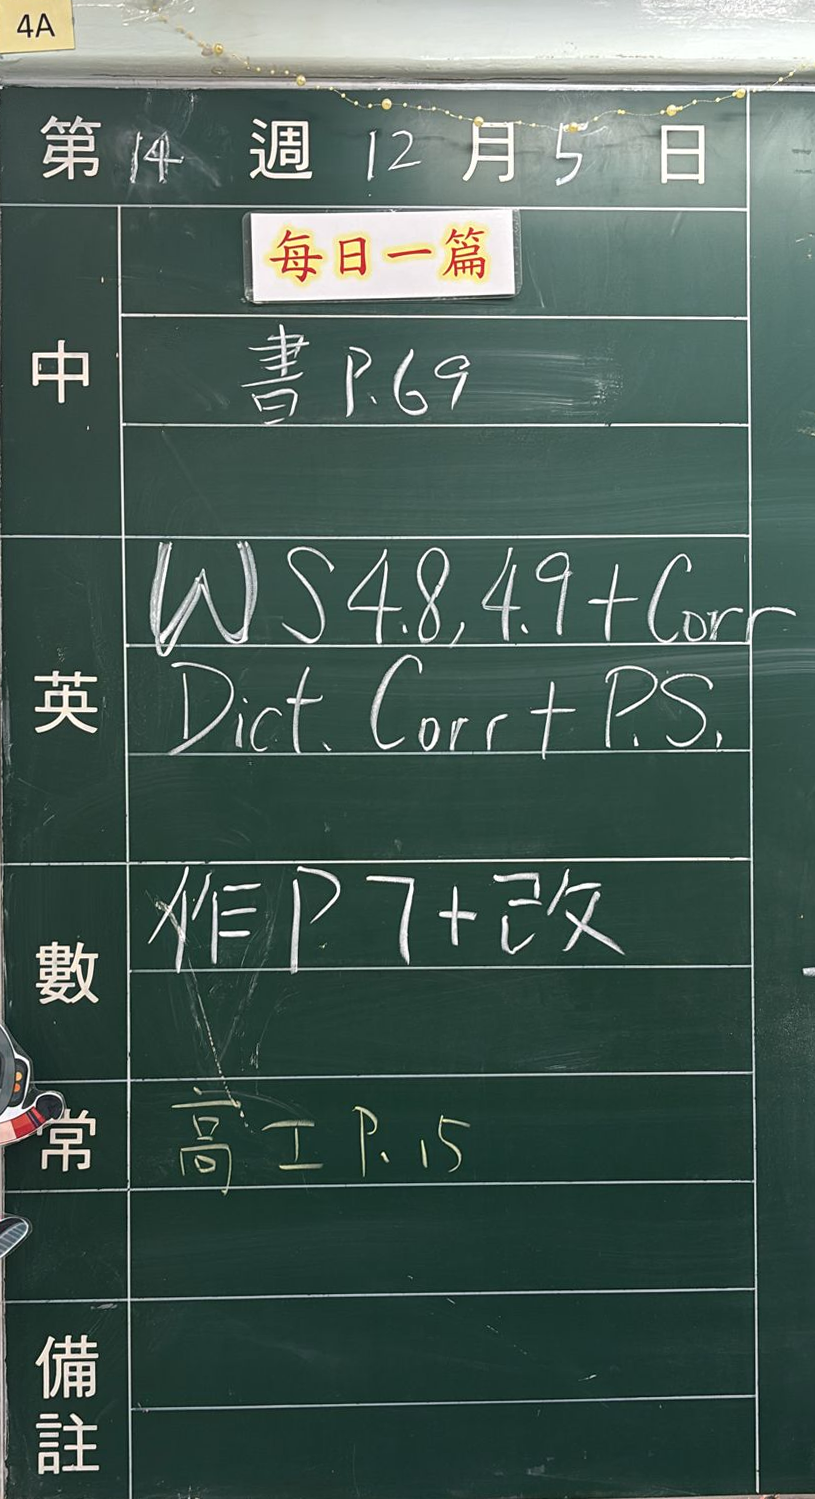 4A
第 14 週 12 月 5 日
每日一篇
中
書 P.69
WS 4.8, 4.9 + Corr
英
Dict. Corr + P.S.
作 P 7 + 改
數
常
高工 P. 15
備註